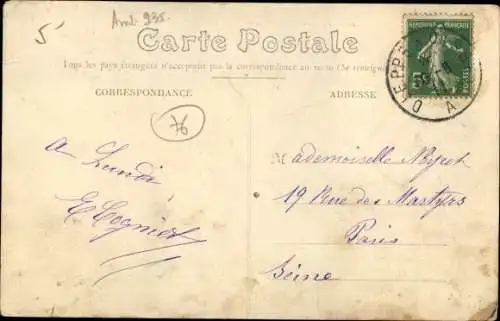 5
Aml. 935.
Carte Postale
Tous les pays étrangers n'acceptent pas la correspondance au recto (Se renseigner
CORRESPONDANCE
ADRESSE
RÉPUBLIQUE FRANÇAISE
5
POSTES
DIEPPE
76
à Lundi
E Cogniet
Mademoiselle
19 Rue des Martyrs
Paris
Seine